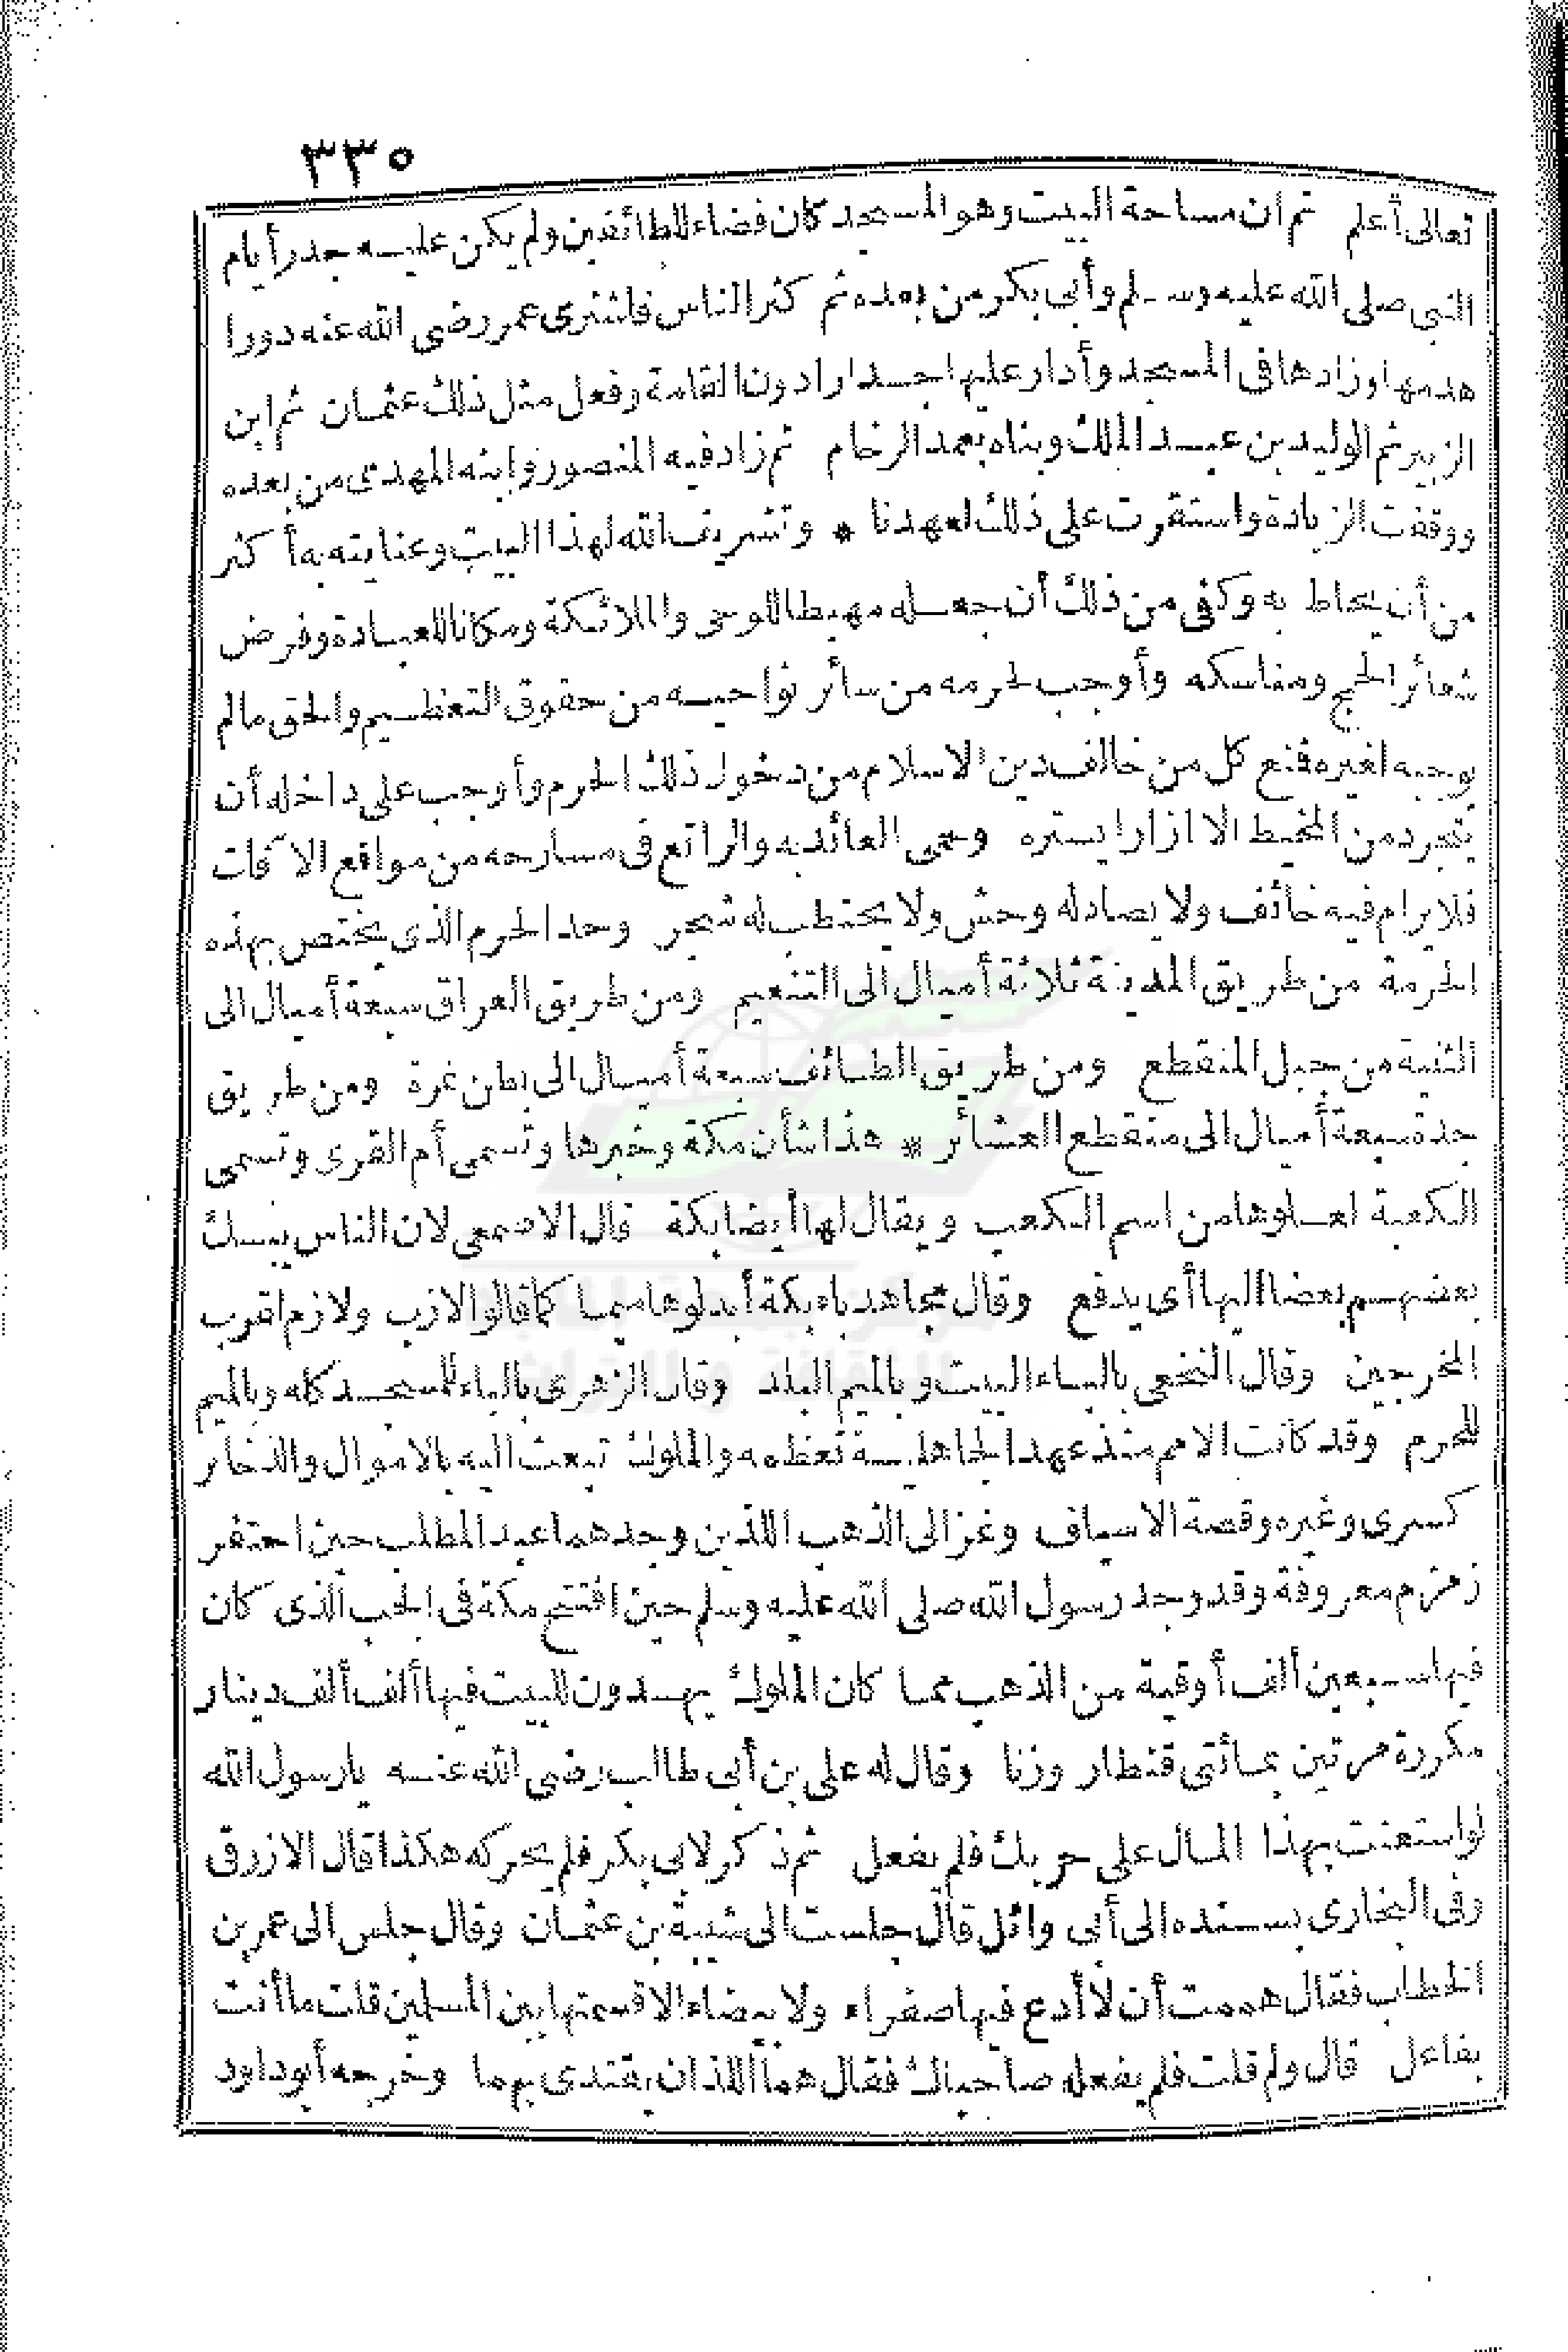 ٣٣٥
تعالى أعلم ثم ان مساحة البيت وهو المسجد كان فضاء للطائفين ولم يكن عليه جدر أيام
النبي صلى الله عليه وسلم وأبي بكر من بعده ثم كثر الناس فاشترى عمر رضى الله عنه دورا
هدمها وزادها فى المسجد وأدار عليها جدارا دون القامة وفعل مثل ذلك عثمان ثم ابن
الزبير ثم الوليد بن عبد الملك وبناه بعمد الرخام ثم زاد فيه المنصور وابنه المهدى من بعده
ووقفت الزيادة واستقرت على ذلك لعهدنا * وتشريف الله لهذا البيت وعنايته به أكثر
من أن يحاط به وكفى من ذلك أن جعله مهبطا للوحى والملائكة ومكانا للعبادة وفرض
شعائر الحج ومناسكه وأوجب لحرمه من سائر نواحيه من حقوق التعظيم والحق مالم
يوجبه لغيره فمنع كل من خالف دين الاسلام من دخول ذلك الحرم وأوجب على داخله أن
يتجرد من المخيط الا ازارا يستره وحمى العائذ به والراتع فى مسارحه من مواقع الآفات
فلا يرام فيه خائف ولا يصاد له وحش ولا يحتطب له شجر وحد الحرم الذى يختص بهذه
الحرمة من طريق المدينة ثلاثة أميال الى التنعيم ومن طريق العراق سبعة أميال الى
الثنية من جبل المنقطع ومن طريق الطائف سبعة أميال الى بطن نمرة ومن طريق
جدة سبعة أميال الى منقطع العشائر * هذا شأن مكة وخبرها وتسمى أم القرى وتسمى
الكعبة لعلوها من اسم الكعب ويقال لها أيضا بكة قال الاصمعى لان الناس يبك
بعضهم بعضا اليها أى يدفع وقال مجاهد باء بكة أبدلوها ميما كما قالوا لازب ولازم لقرب
المخرجين وقال النخعى بالباء البيت وبالميم البلد وقال الزهرى بالباء للمسجد كله وبالميم
للحرم وقد كانت الامم منذ عهد الجاهلية تعظمه والملوك تبعث اليه بالاموال والذخائر
كسرى وغيره وقصة الاسياف وغزالى الذهب اللذين وجدهما عبد المطلب حين احتفر
زمزم معروفة وقد وجد رسول الله صلى الله عليه وسلم حين افتتح مكة فى الجب الذى كان
فيها سبعين ألف أوقية من الذهب مما كان الملوك يهدون للبيت فيها ألف ألف دينار
مكررة مرتين بمائتى قنطار وزنا وقال له على بن أبى طالب رضى الله عنه يارسول الله
لو استعنت بهذا المال على حربك فلم يفعل ثم ذكر لابى بكر فلم يحركه هكذا قال الازرقى
وفى البخارى بسنده الى أبى وائل قال جلست الى شيبة بن عثمان وقال جلس الى عمر بن
الخطاب فقال هممت أن لا أدع فيها صفراء ولا بيضاء الا قسمتها بين المسلمين قلت ما أنت
بفاعل قال ولم قلت فلم يفعله صاحباك فقال هما اللذان يقتدى بهما وخرجه أبو داود